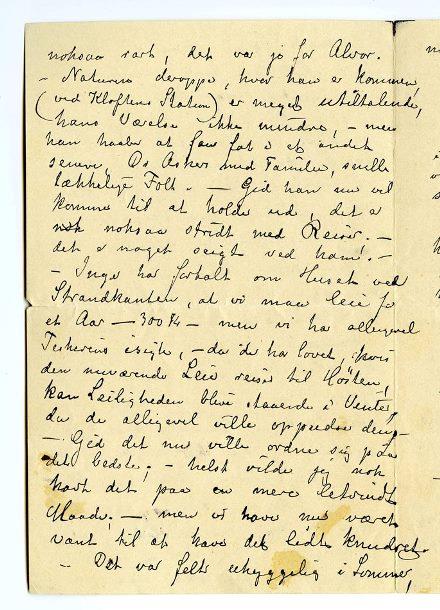 noksaa rart, det var jo for Alvor.
– Naturen deroppe, hvor han er kommen,
(ved Kløftens Station) er meget utiltalende,
hans Værelse ikke mindre, – men
han haaber at faa fat i et andet
senere. Os Askers med Familie, snille
lækkelige Folk. – Gid han nu vil
komme til at holde ud, det er
noksaa stridt med Reiser. –
det er noget seigt ved ham! –
– Inga har fortalt om Huset ved
Strandkanten, at vi maa leie for
et Aar – 300 Kr – men vi har allevegel
isigte, – da de har lovet, hvis
den nuværende Leie reiser til Høsten,
kan Leiligheden blive staaende i Vente,
da de alligevel ville oppudse den –
– Gid det nu ville ordne sig paa
det bedste; – helst vilde jeg nok
havt det paa en mere letvindt
Maade; – men vi have nu været
vant til at have det lidt knudret. –
– Det var felt uhyggelig i Sommer,